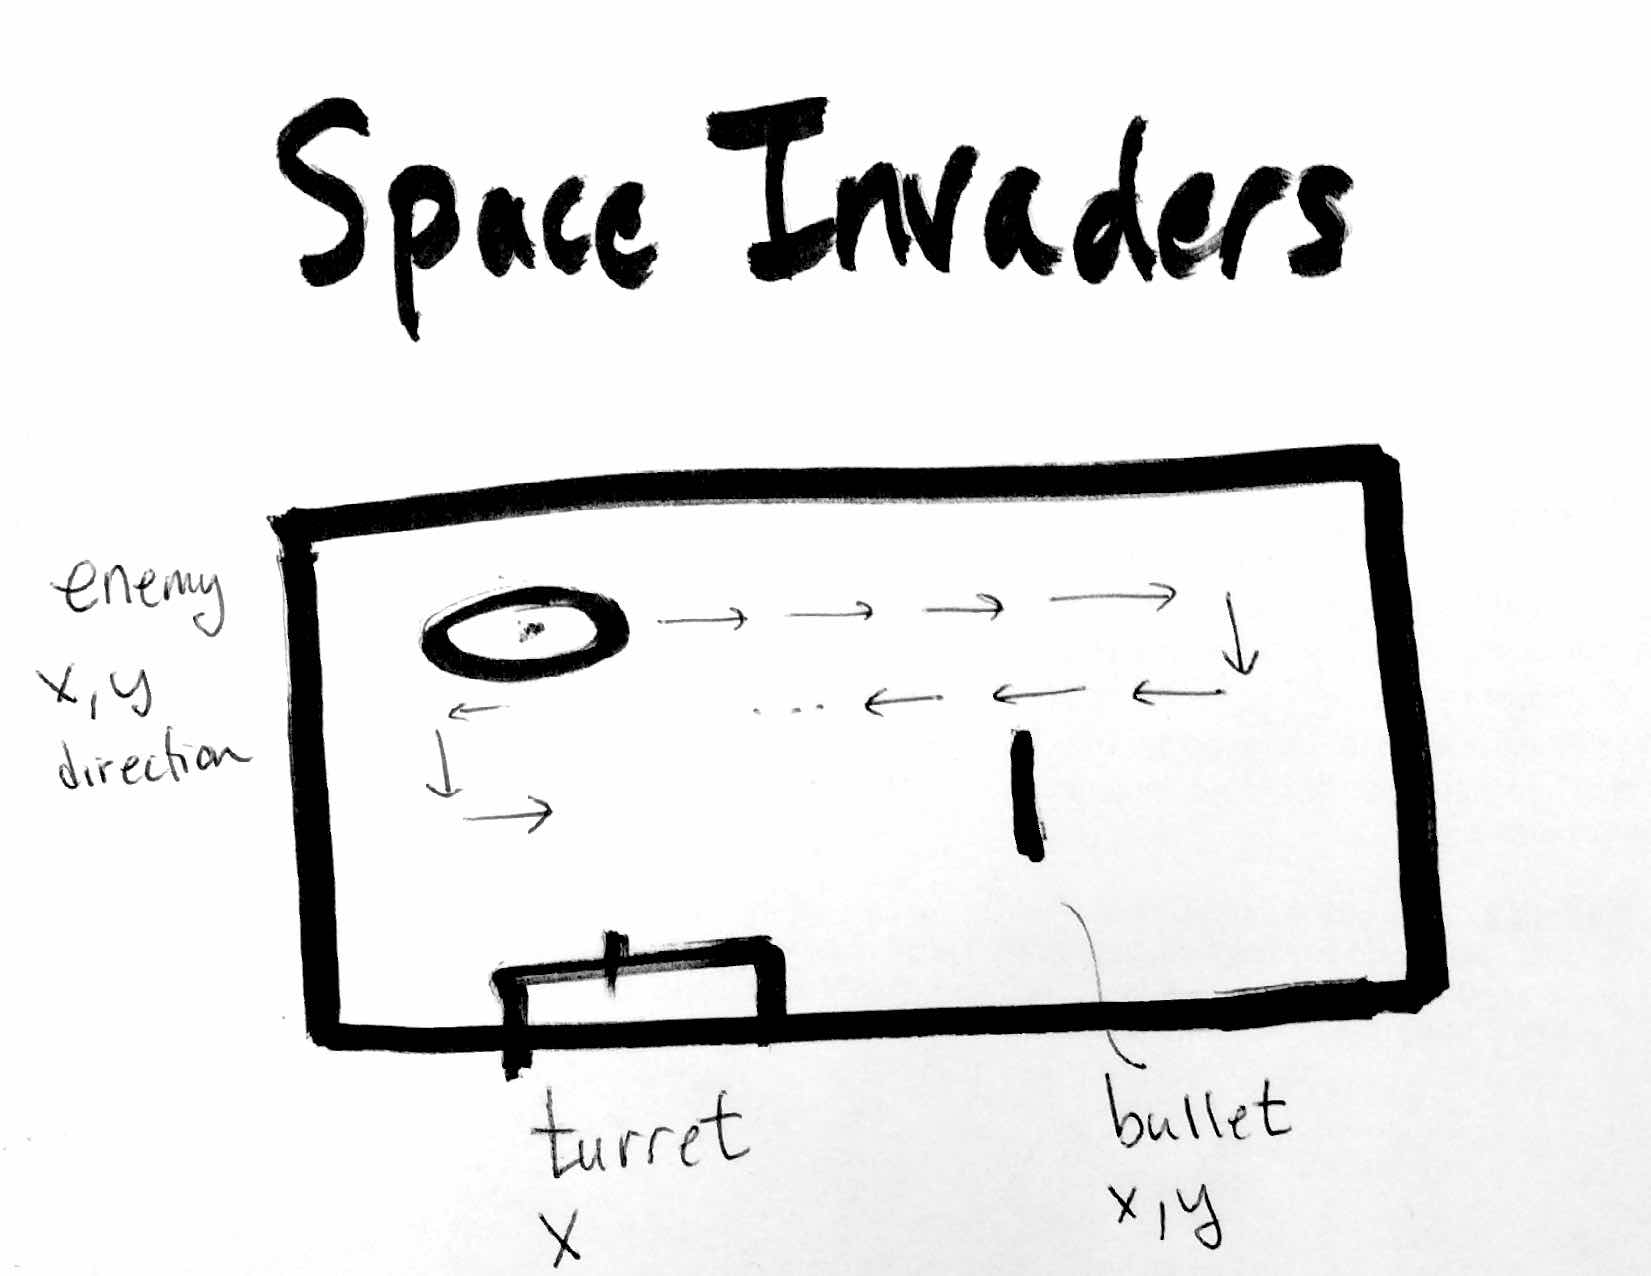 Space Invaders
enemy
x, y
direction
...
turret
x
bullet
x, y